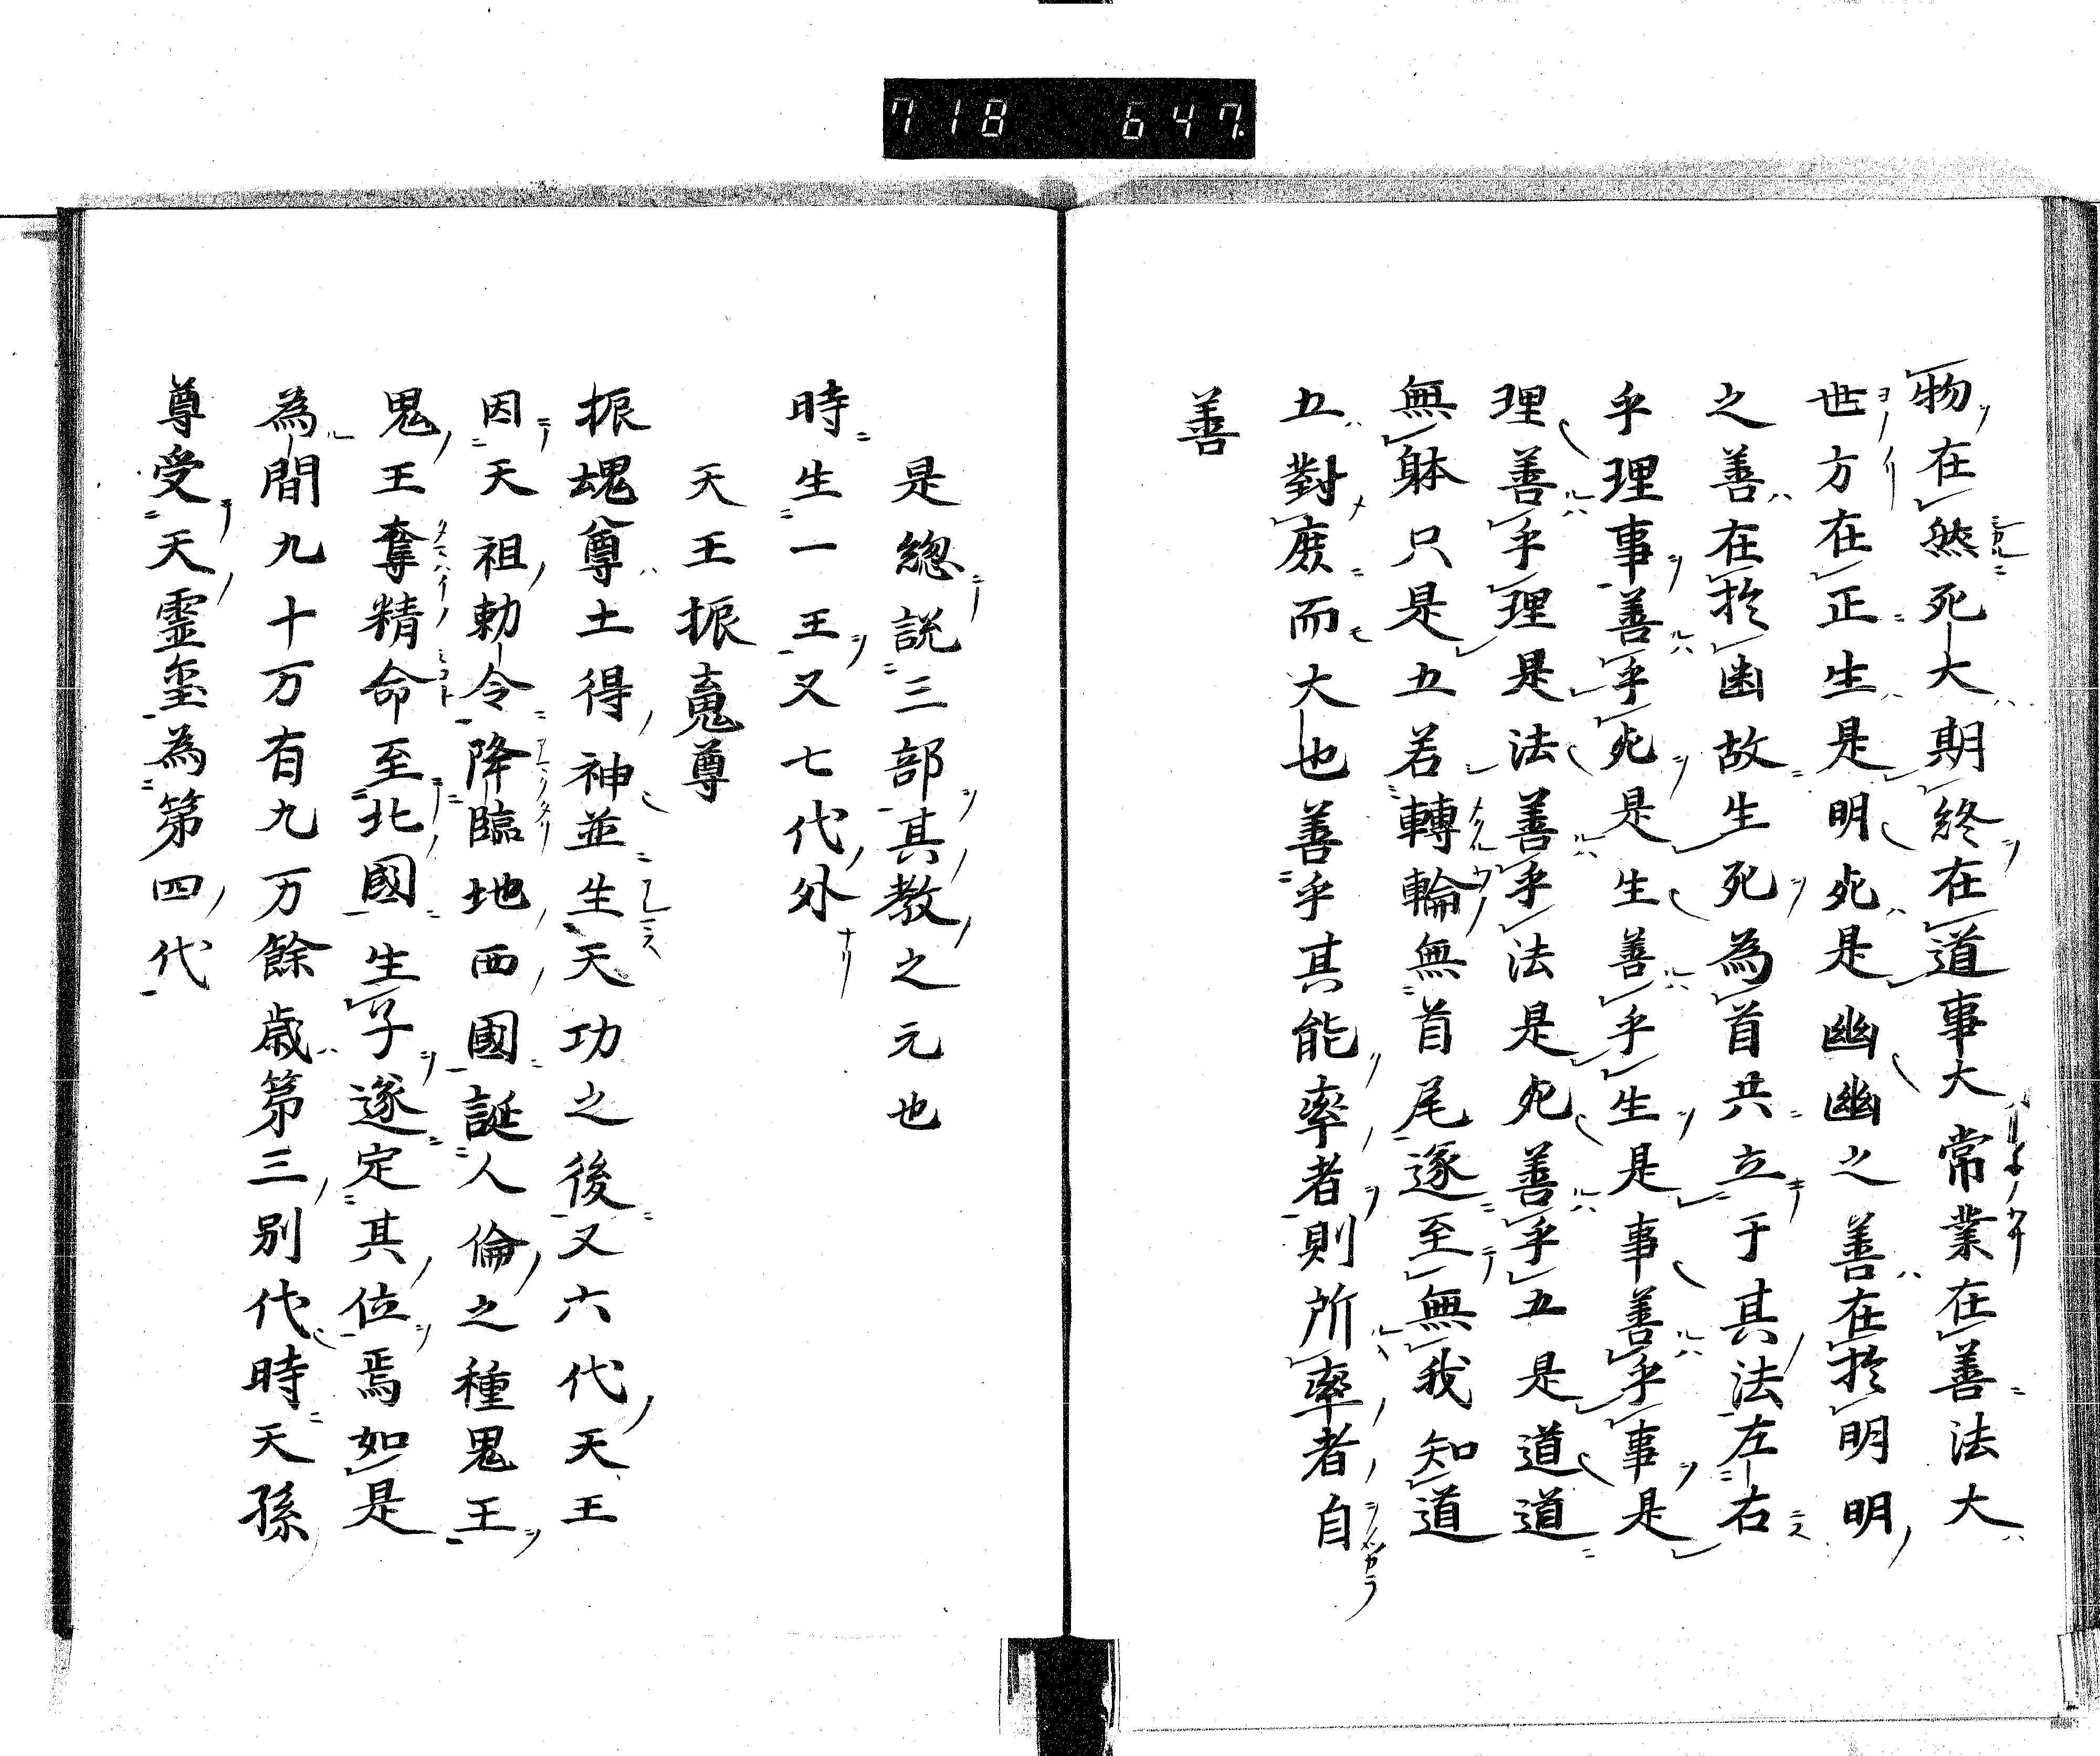 718 647.
物在然死大期終在道事大常業在善法大
世方在正生是明死是幽幽之善在於明明
之善在於幽故生死為首共立于其法左右
乎理事善乎死是生善乎生是事善乎事是
理善乎理是法善乎法是死善乎五是道道
無躰只是五若轉輪無首尾逐至無我知道
五對度而大也善乎其能率者則所率者自
善
是總説三部其教之元也
時生一王又七代外
天王振䰟尊
振䰟尊土得神並生天功之後又六代天王
因天祖勅令降臨地西國誕人倫之種鬼王
鬼王奪精命至北國生子逐定其位焉如是
為間九十万有九万餘歳第三別代時天孫
尊受天靈璽為第四代